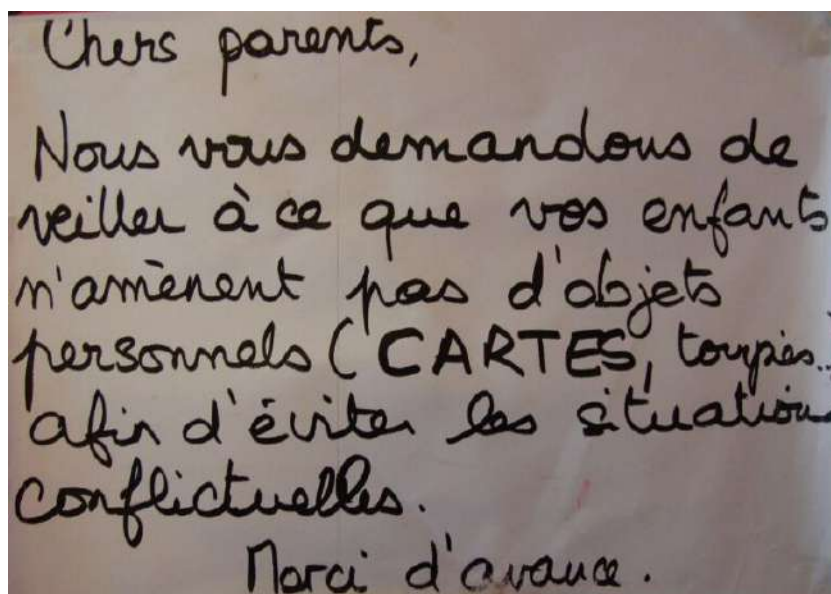 Chers parents,
Nous vous demandons de
veiller à ce que vos enfants
n'amènent pas d'objets
personnels (CARTES, toupies..
afin d'éviter les situation
conflictuelles.
Merci d'avance.